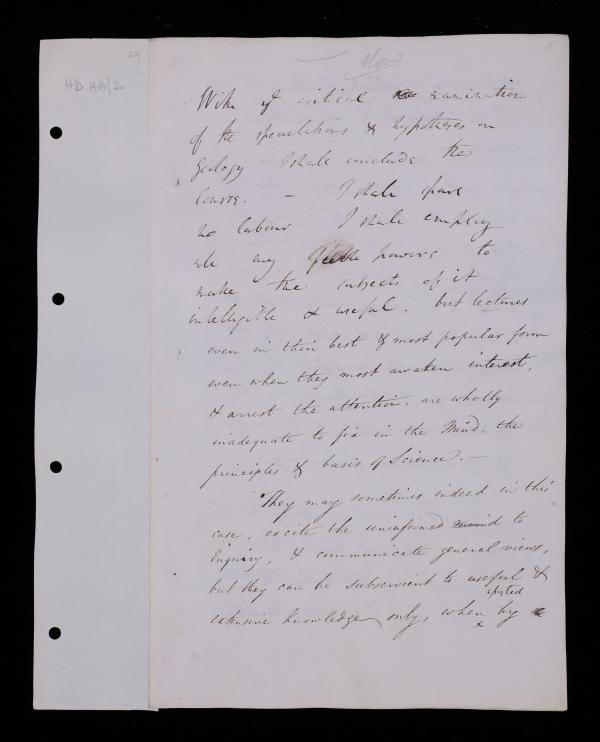 29
8
HD 4A/2
Now
With yᵉ critical examination
of the speculations & hypotheses on
Geology I shall conclude the
Course. — I shall spare
no labour I shall employ
all my powers to
make the subjects of it
intelligible & useful, but lectures
even in their best & most popular form
even when they most awaken interest,
& arrest the attention, are wholly
inadequate to fix in the Mind, the
principles & basis of Science. —
They may sometimes indeed in this
case, excite the uninformed mind to
Enquiry, & communicate general views,
but they can be subservient to useful &
extensive knowledge only, when by
x